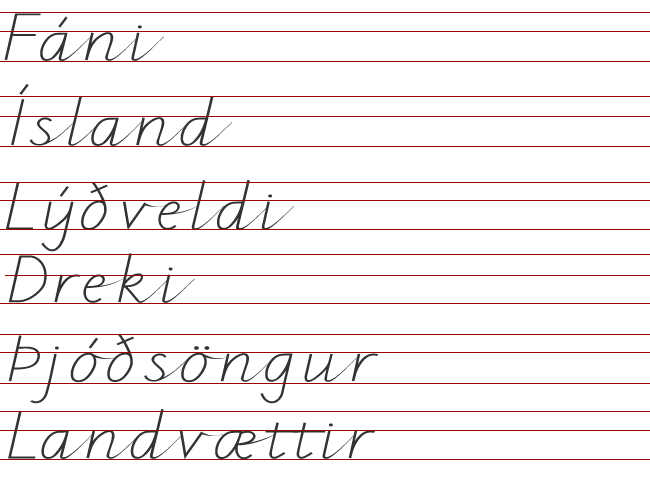 Fáni
Ísland
Lýðveldi
Dreki
Þjóðsöngur
Landvættir